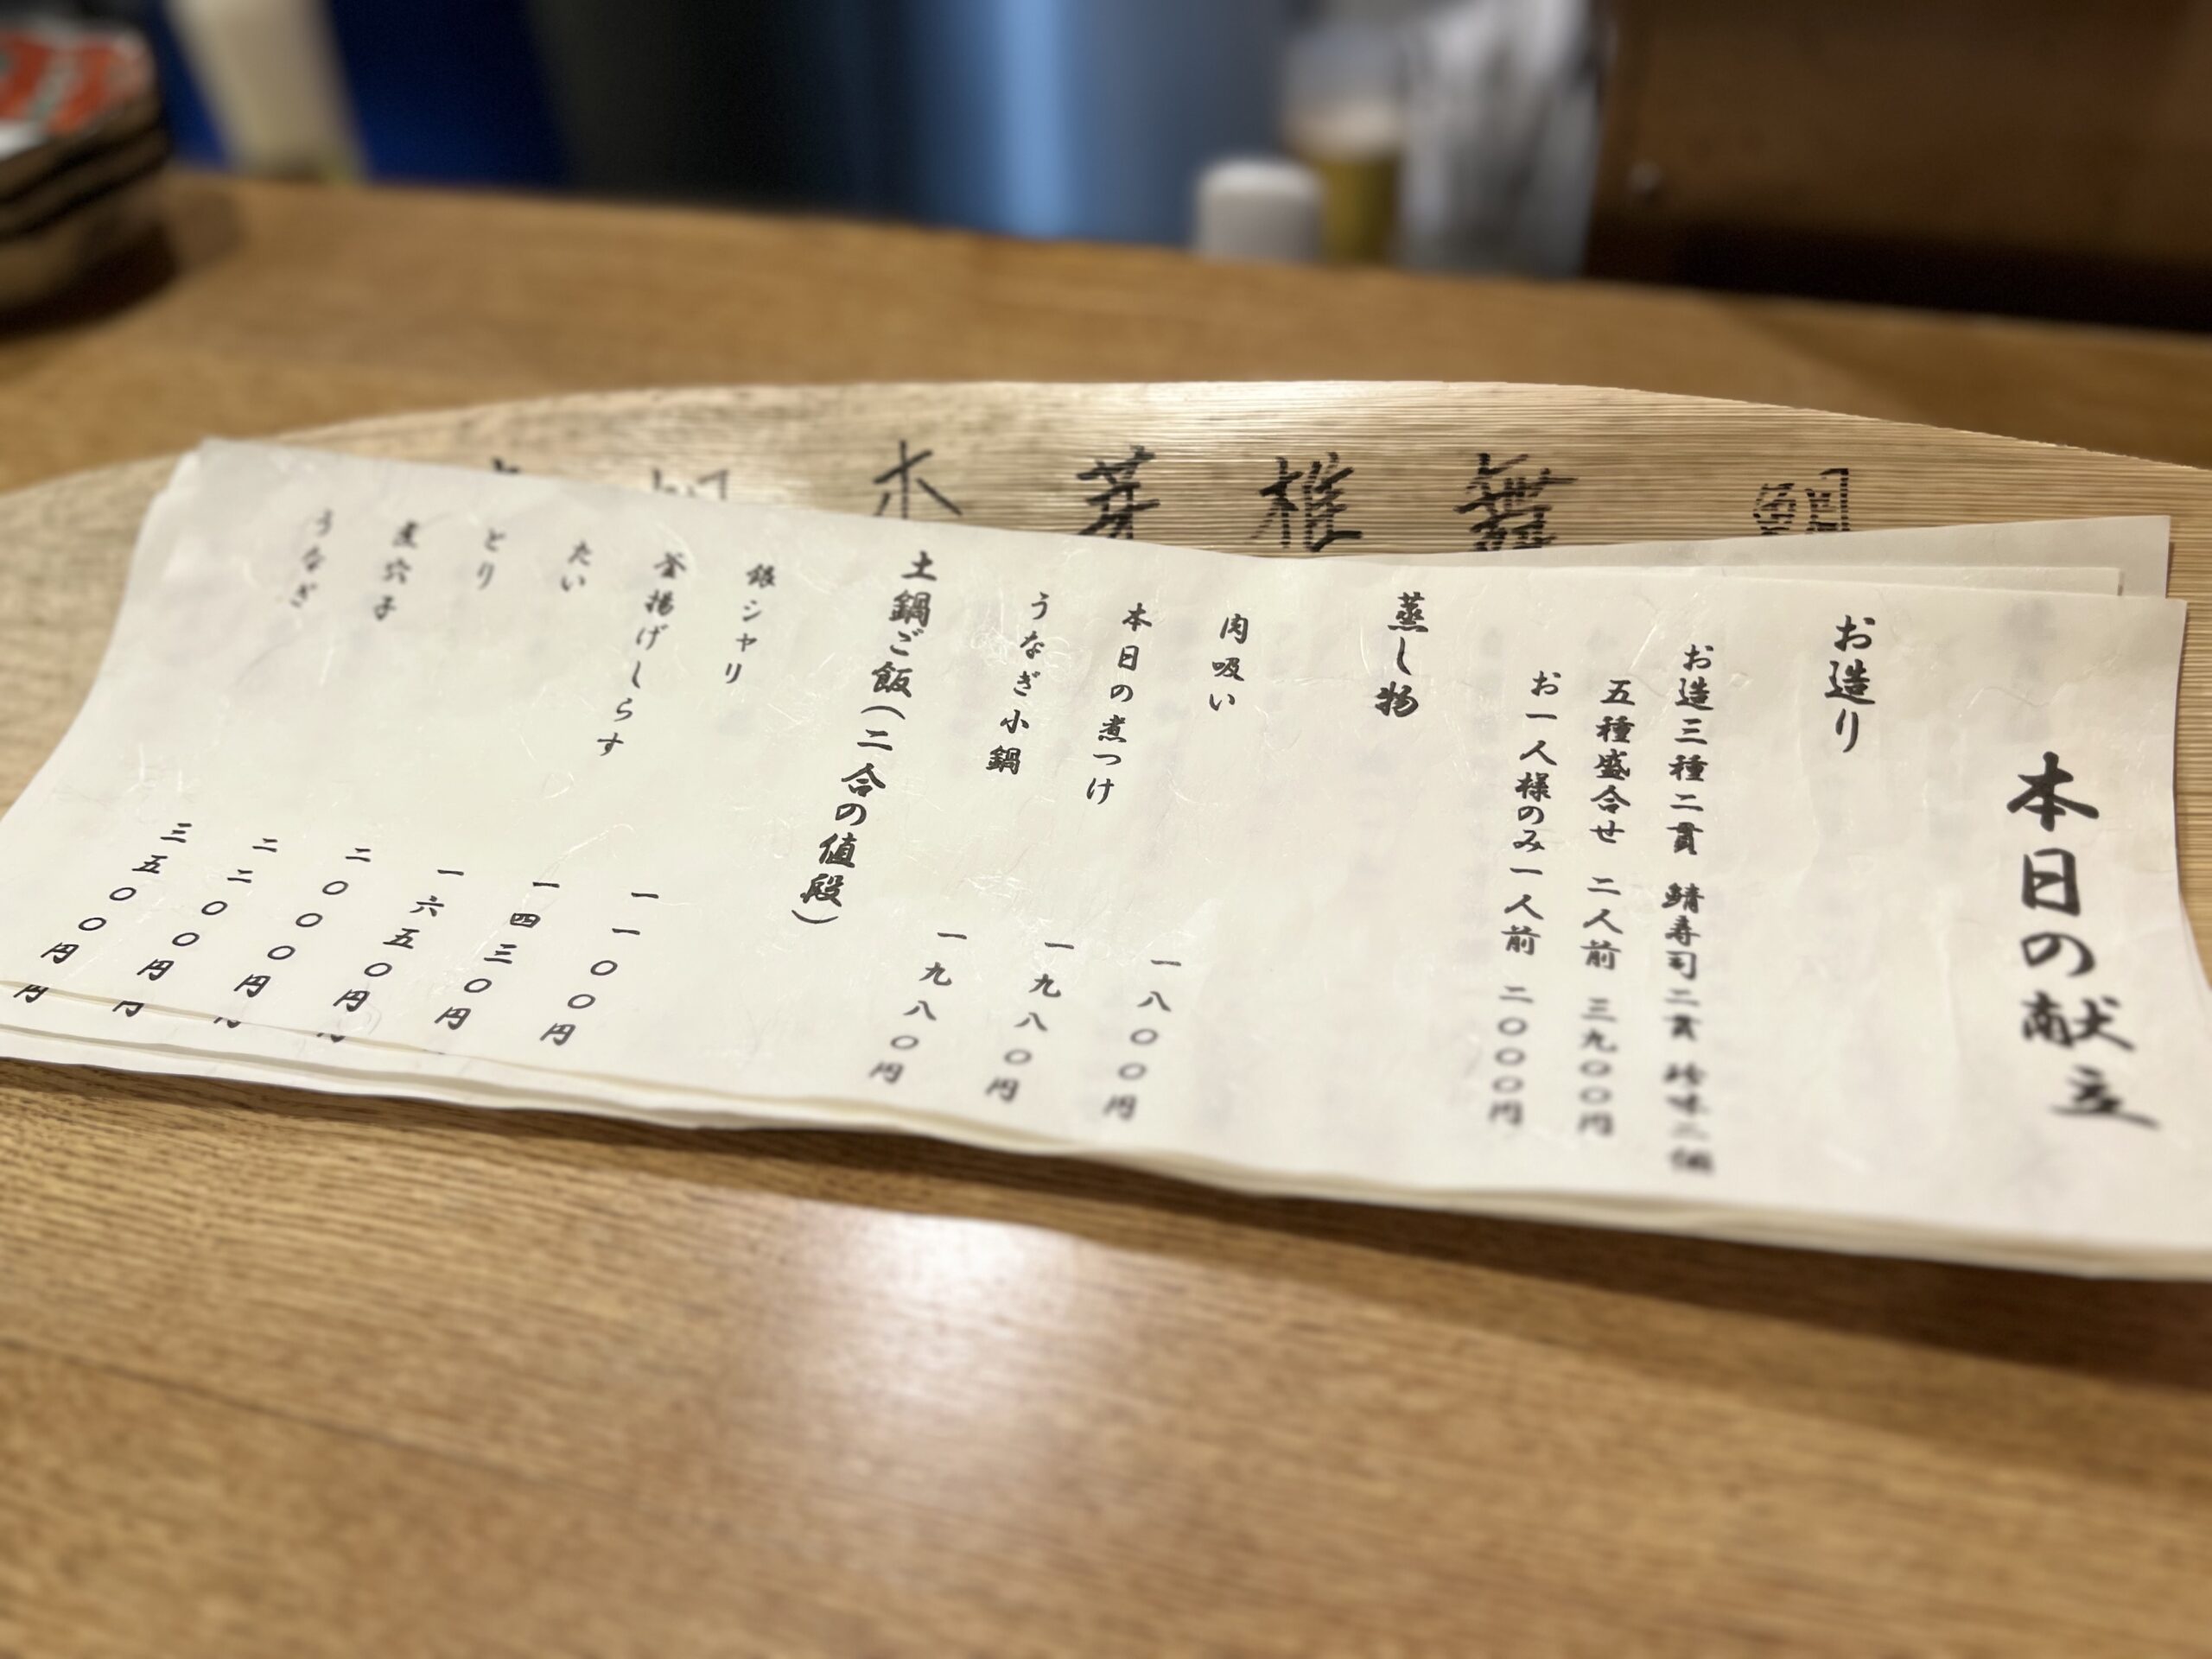 本日の献立
お造り
お造三種二貫 鯖寿司二貫 珍味二個
五種盛合せ 二人前 三九〇〇円
お一人様のみ一人前 二〇〇〇円
蒸し物
肉吸い 一八〇〇円
本日の煮つけ 一九八〇円
うなぎ小鍋 一九八〇円
土鍋ご飯(二合の値段)
銀シャリ 一一〇〇円
釜揚げしらす 一四三〇円
たい 一六五〇円
とり 二〇〇〇円
煮穴子 二二〇〇円
うなぎ 三五〇〇円
円
円